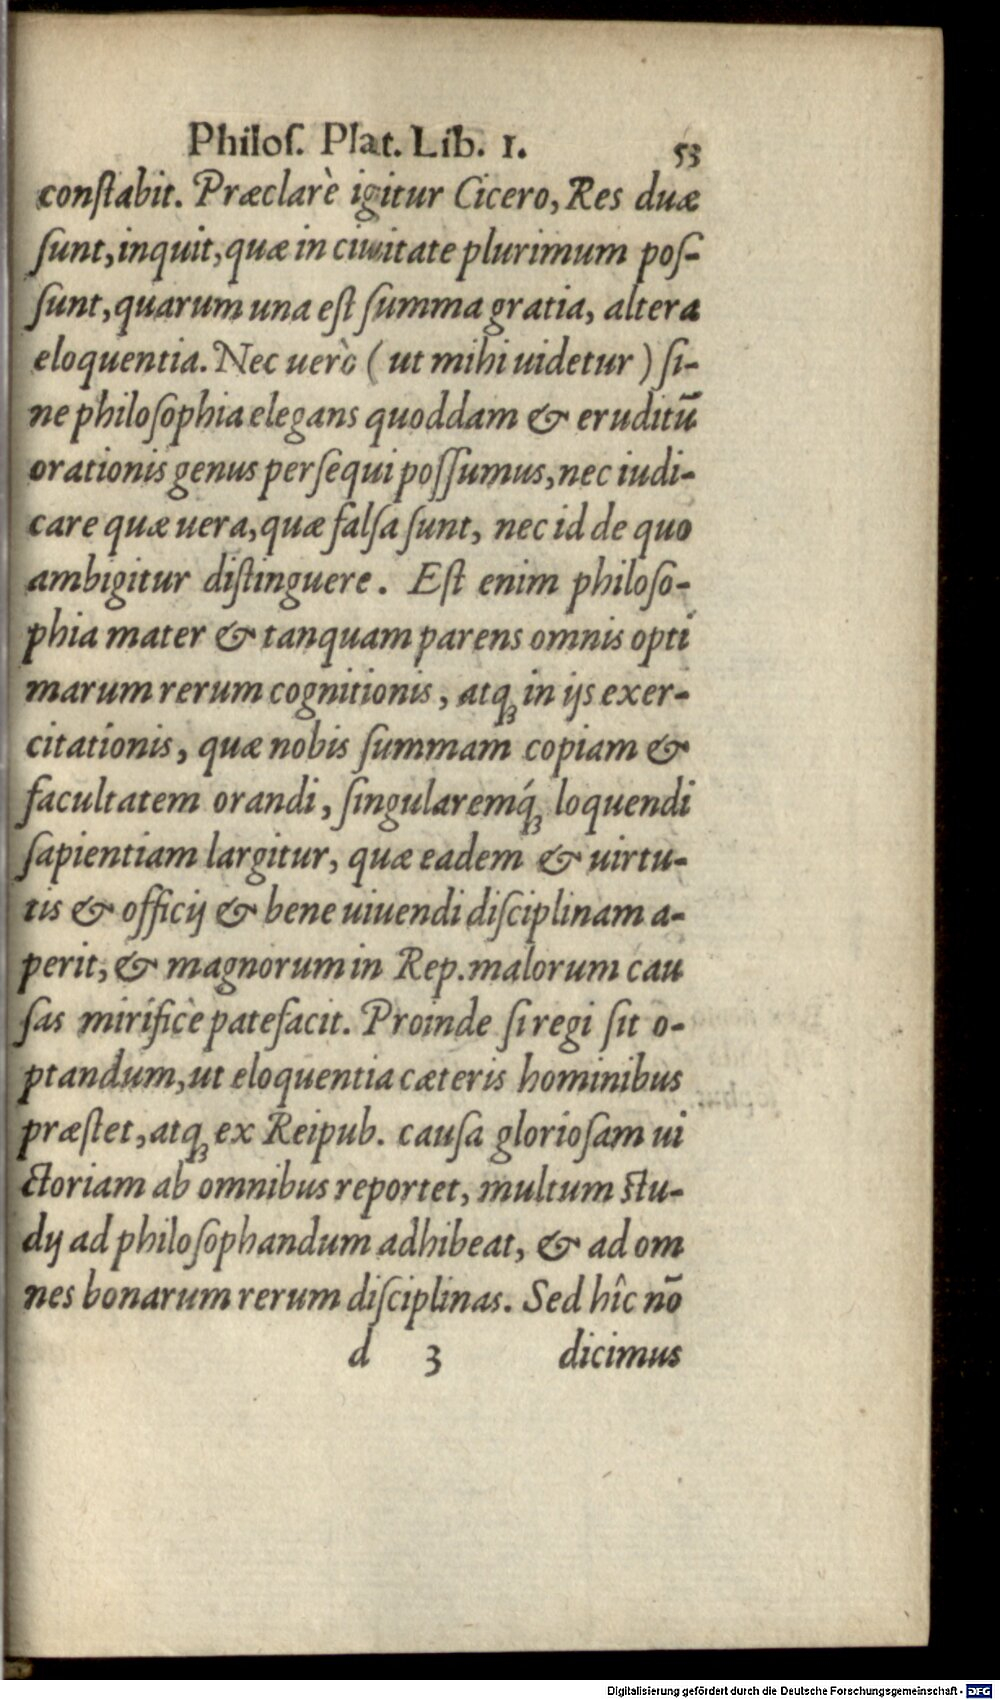 Philoſ. Plat. Lib. 1. 53
conſtabit. Præclarè igitur Cicero, Res duæ
ſunt, inquit, quæ in ciuitate plurimum poſ-
ſunt, quarum una eſt ſumma gratia, altera
eloquentia. Nec uerò ( ut mihi uidetur ) ſi-
ne philoſophia elegans quoddam & eruditū
orationis genus perſequi poſſumus, nec iudi-
care quæ uera, quæ falſa ſunt, nec id de quo
ambigitur diſtinguere. Eſt enim philoſo-
phia mater & tanquam parens omnis opti
marum rerum cognitionis, atq́ꝫ in ijs exer-
citationis, quæ nobis ſummam copiam &
facultatem orandi, ſingularemq́ꝫ loquendi
ſapientiam largitur, quæ eadem & uirtu-
tis & officij & bene uiuendi diſciplinam a-
perit, & magnorum in Rep. malorum cau
ſas mirificè patefacit. Proinde ſi regi ſit o-
ptandum, ut eloquentia cæteris hominibus
præſtet, atqꝫ ex Reipub. cauſa glorioſam ui
ctoriam ab omnibus reportet, multum ſtu-
dij ad philoſophandum adhibeat, & ad om
nes bonarum rerum diſciplinas. Sed hîc nō
d 3 dicimus
Digitalisierung gefördert durch die Deutsche Forschungsgemeinschaft - DFG